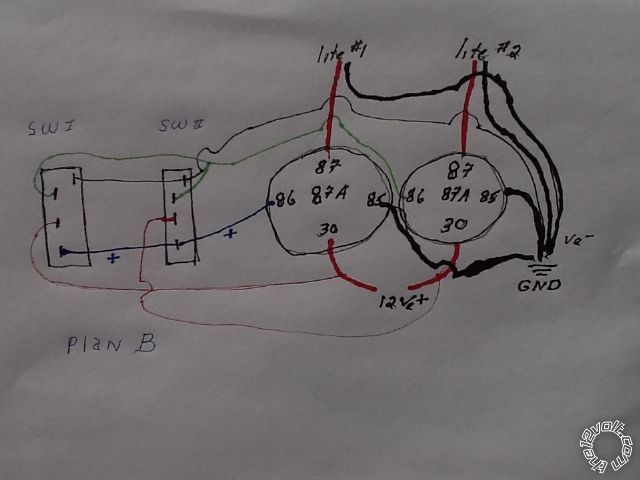 lite #1 lite #2
SW I SW II
87 87
86 87A 85 86 87A 85
30 30
+ +
Ve-
12Ve+
GND
Plan B
the12volt.com